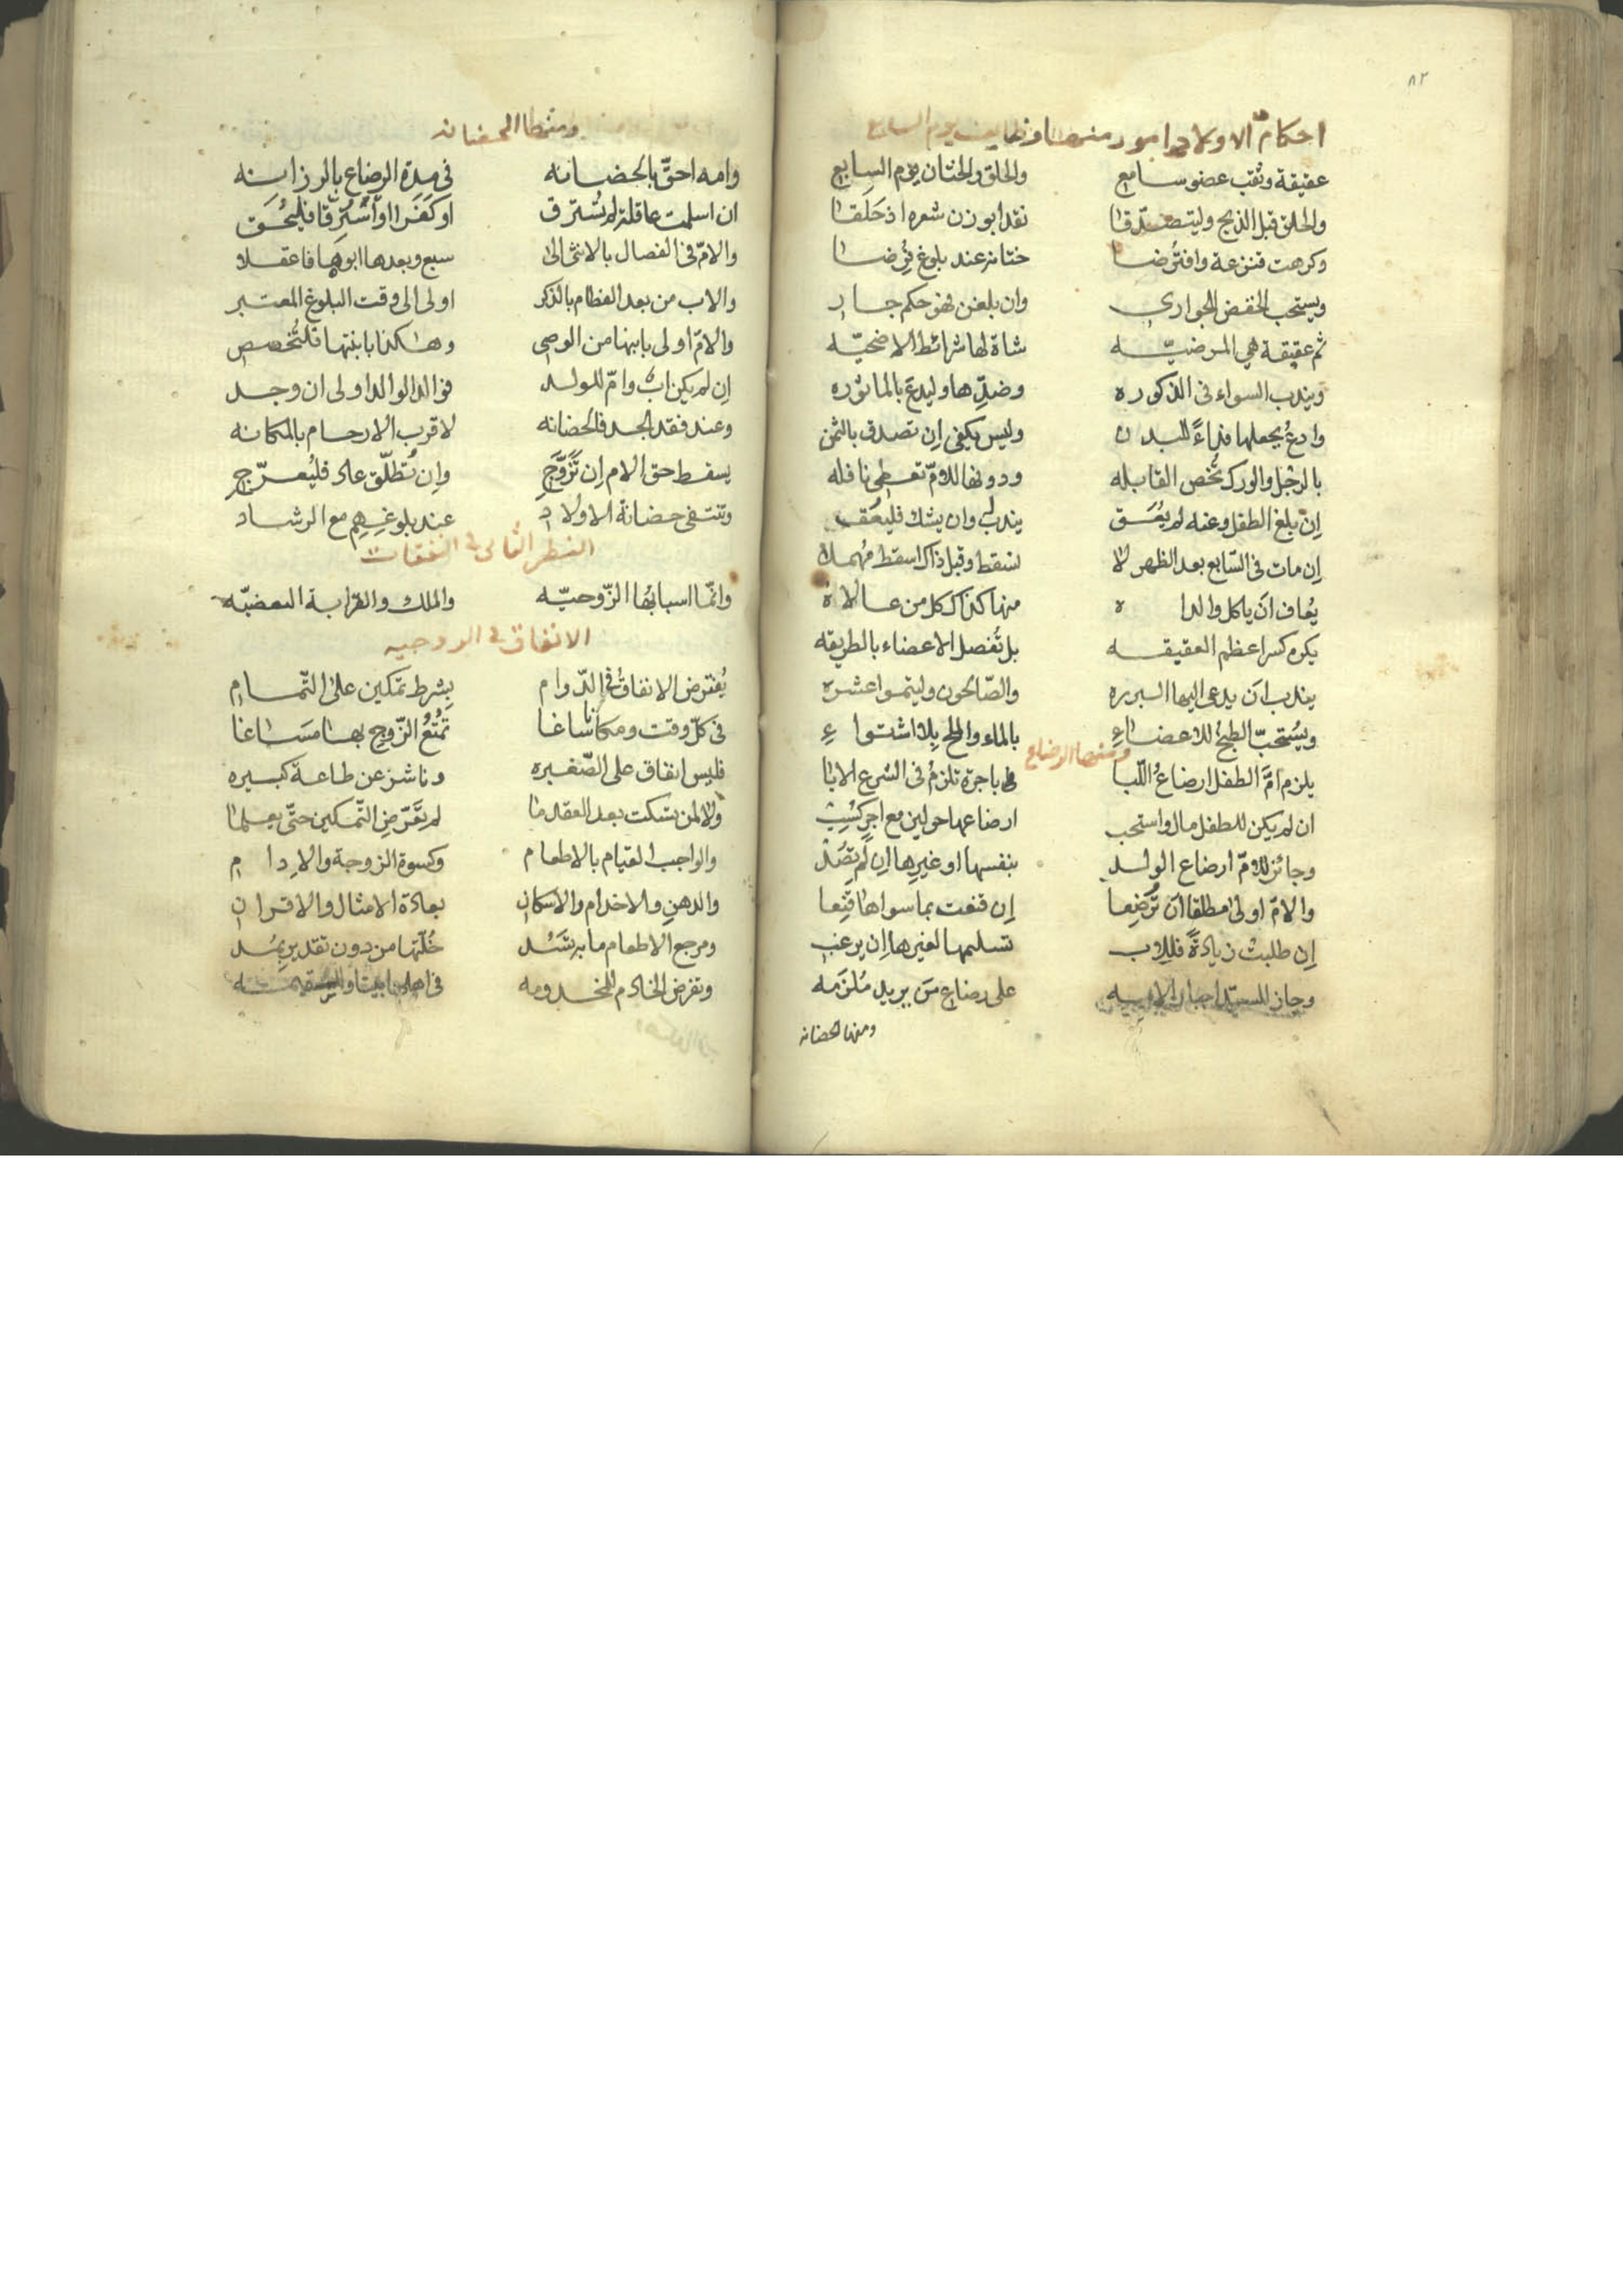 ٨٢
احكام الاولاد امور منها وظايف يوم السابع
عقيقة وثقب عضو سامع والحلق والختان يوم السابع
والحلق قبل الذبح وليتصدقا نقدا بوزن شعره اذ حلقا
وكرهت قنزعة وافترضا ختانه عند بلوغ فرضا
ويستحب الخفض للجواري وان بلغن فهو حكم جار
ثم عقيقة هي المرضيّه شاة لها شرائط الاضحيّه
ويندب السواء في الذكوره وضدّها وليدع بالماثوره
وادع يجعلها فداءً للبدن وليس يكفي ان تصدق بالثمن
بالرجل والورك تُخص القابله ودونها للامّ تعطى نافله
اِن بلغ الطفل وعنه لم يُعَق يندب وان يشك فليعق
اِن مات في السّابع بعد الظهر لا تسقط وقبل ذاك اسقط مهملا
يُعاف ان ياكل والداه منها كذاك كل من عالاه
يكره كسر اعظم العقيقه بل تُفصل الاعضاء بالطريقه
يندب ان يدعى اليها البرره والصّالحون وليتموا عشره
ويُستحبّ الطبخ للاعضاءِ بالماء والملح بلا اشتواءِ
ومنها الرضاع
يلزم امَّ الطفل ارضاعُ اللّبا باجرة تلزمُ في الشرع الابا
ان لم يكن للطفل مال واستحب ارضاعها حولين مع اجر
وجائز للامّ ارضاع الولد بنفسها او غيرها اِن لم
والامّ اولى مطلقا ان تُرضِعا اِن قنعت بما سواها قَنِعا
اِن طلبت زيادةً فللاب تسليمها لغيرها اِن يرغب
وجاز للسيّد اجبار الامه على رضاع مَن يريد مُلزَمه
ومنها الحضانه
ومنها الحضانه
وامه احقّ بالحضانه في مدة الرضاع بالرزانه
ان اسلمت عاقلة لم تُسترق او كَفَرا او استُرِقّا فليُحَق
والامّ في الفصال بالانثى الى سبع وبعدها ابوها فاعقلا
والاب من بعد الفطام بالذكر اولى الى وقت البلوغ المعتبر
والامّ اولى بابنها من الوصى وهكذا بابنتها فلتُخصص
اِن لم يكن ابٌ وامّ للولد فوالد الوالد اولى ان وجد
وعند فقد الجد فالحضانه لاقرب الارحام بالمكانه
يسقط حق الام اِن تَزَوَّجِ واِن تُطلّق عاد فليُعرّجِ
وتنتفى حضانة الاولاد عند بلوغِهِم مع الرشاد
النظر الثانى في النفقات
وانّما اسبابُها الزّوجيّه والملك والقرابة البعضيّه
الانفاق في الزوجيه
يُفترض الانفاقُ في الدّوام بِشرط تمكين على التّمام
في كلّ وقت ومكان ساغا تمتُّعُ الزّوج بها مسَاغا
فليس انفاق على الصّغيره وناشز عن طاعة كبيره
ولا لمن سكت بعد العقد ما لم تَعرّضِ التّمكين حتّى يعلما
والواجب القيام بالاطعام وكسوة الزوجة والاِدام
والدهنِ والاخدام والاسكان بعادة الامثال والاقران
ومرجع الاطعام ما به تسُد خُلّتها من دون تقدير بمُد
وتفرض الخادم للمخدومه في اهلها